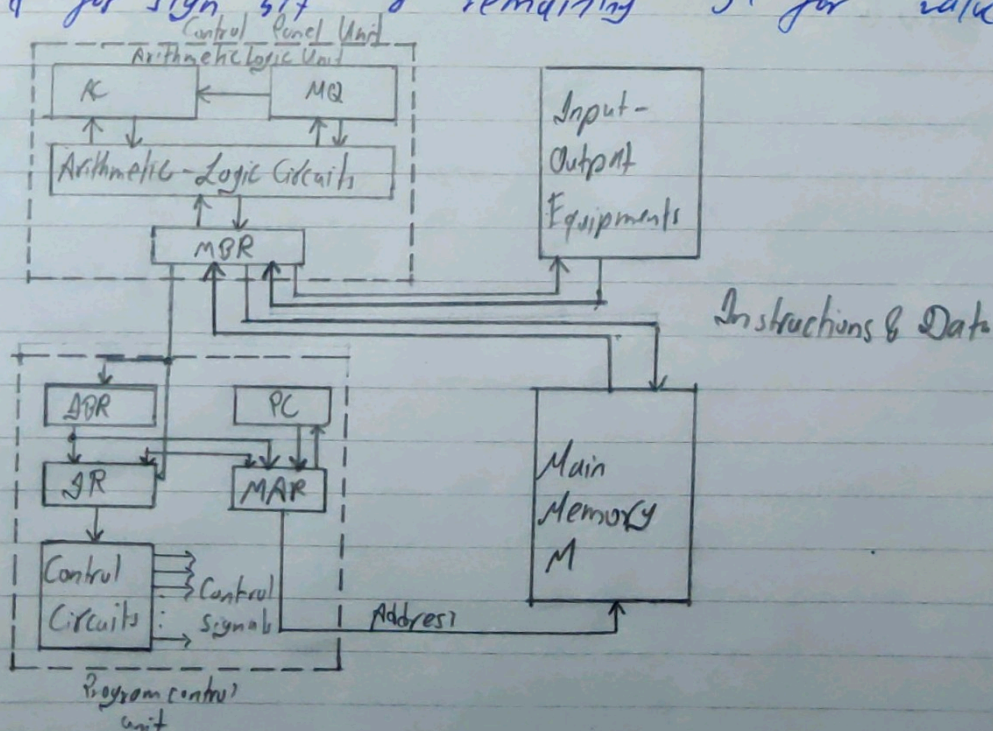 for sign bit & remaining 39 for value
Control Panel Unit
Arithmetic Logic Unit
AC
MQ
Arithmetic - Logic Circuits
MBR
Input -
Output
Equipments
Instructions & Data
IBR
PC
IR
MAR
Main
Memory
M
Control
Circuits
Control
signals
Address
Program control
unit